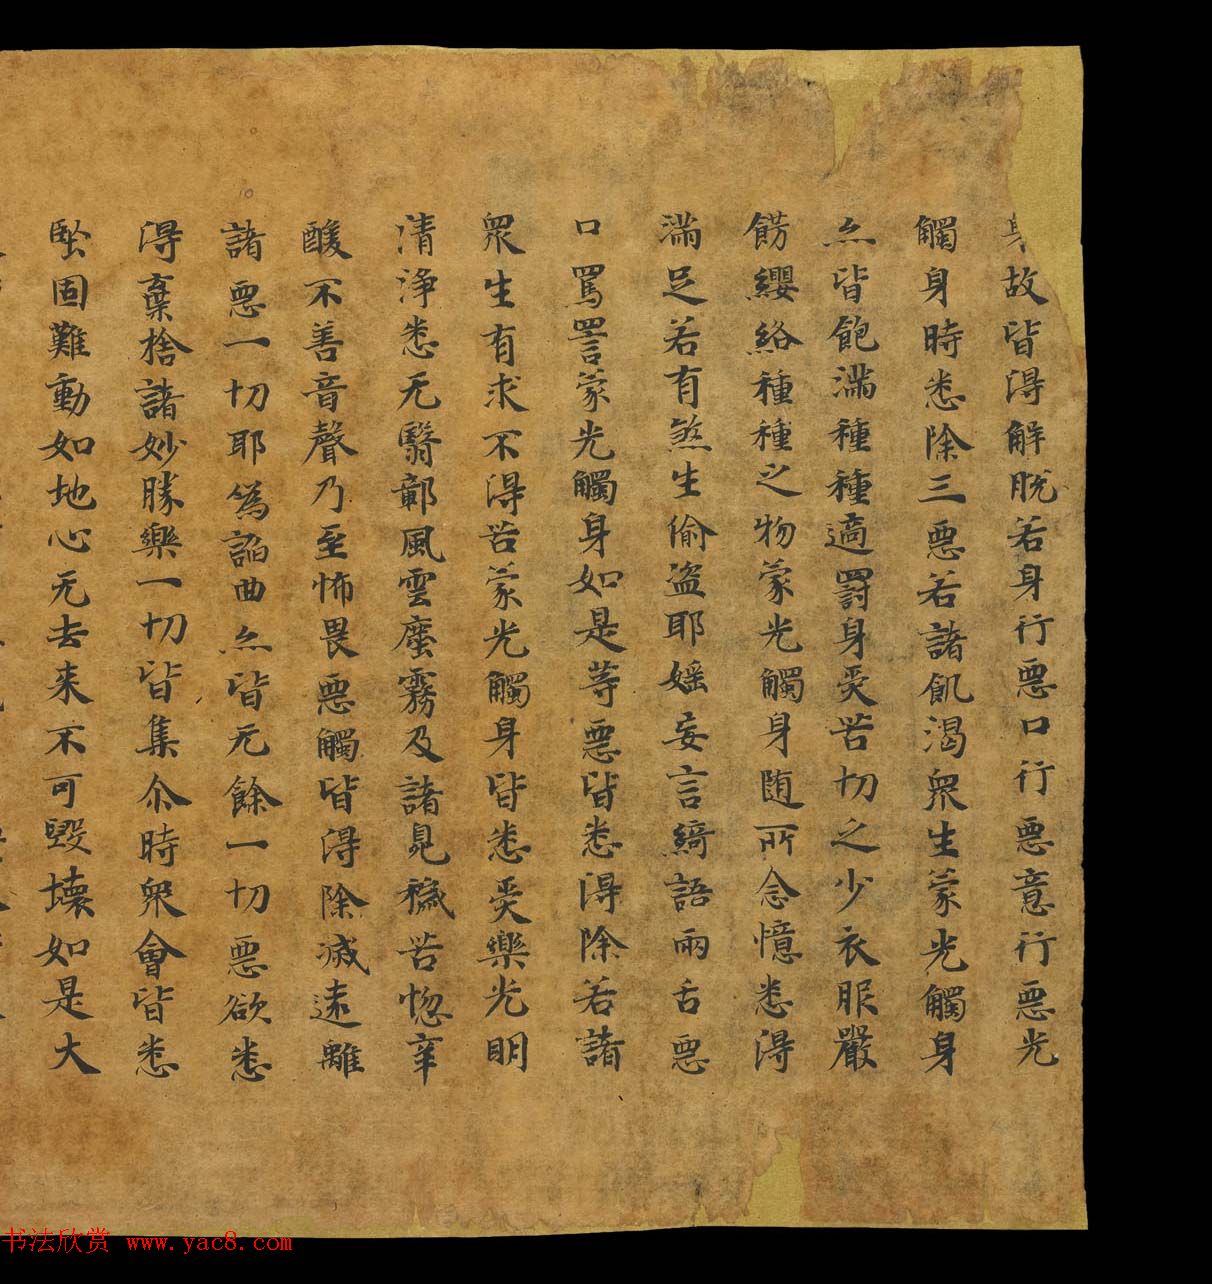 身故皆得解脱若身行惡口行惡意行惡光
觸身時悉除三惡若諸飢渴衆生蒙光觸身
亦皆飽滿種種適罸身受苦切之少衣服嚴
餝纓絡種種之物蒙光觸身随所念憶悉得
滿足若有煞生偷盗耶婬妄言綺語兩舌惡
口罵詈蒙光觸身如是等惡皆悉得除若諸
衆生有求不得苦蒙光觸身皆悉受樂光明
清浄悉无翳鄣風雲塵霧及諸見穢苦惚辛
酸不善音聲乃至怖畏惡觸皆得除滅遠離
諸惡一切耶為諂曲亦皆无餘一切惡欲悉
得棄捨諸妙勝樂一切皆集尒時衆會皆悉
堅固難動如地心无去来不可毀壊如是大
书法欣赏 www.yac8.com